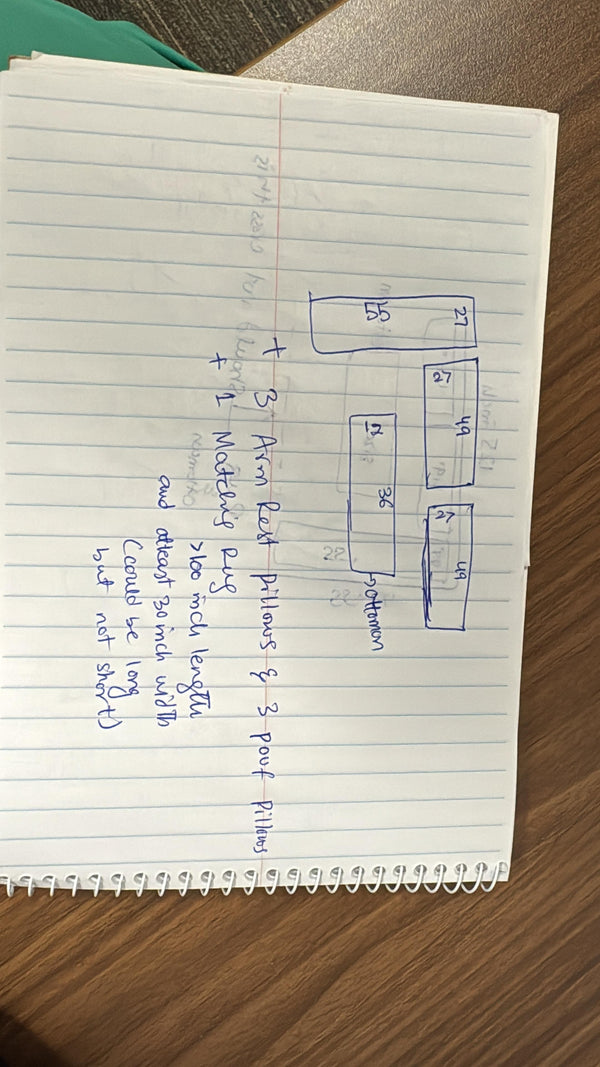 27
27
49
27
49
36
→ottoman
+ 3 Arm Rest pillows & 3 pouf pillows
+ 1 Matching Rug
>100 inch length
and atleast 30 inch width
(could be long
but not short)